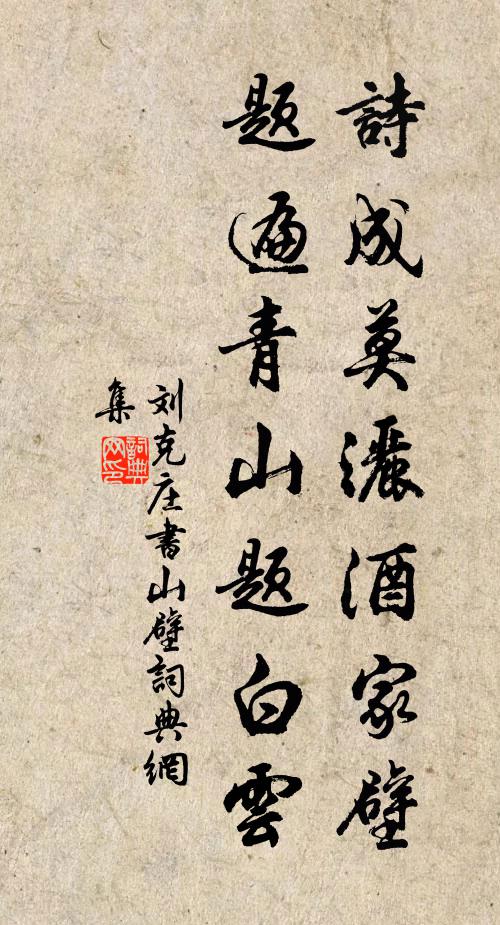 詩成莫灑酒家壁
題遍青山題白雲
刘克庄書山壁詞典網
集
詞典網印